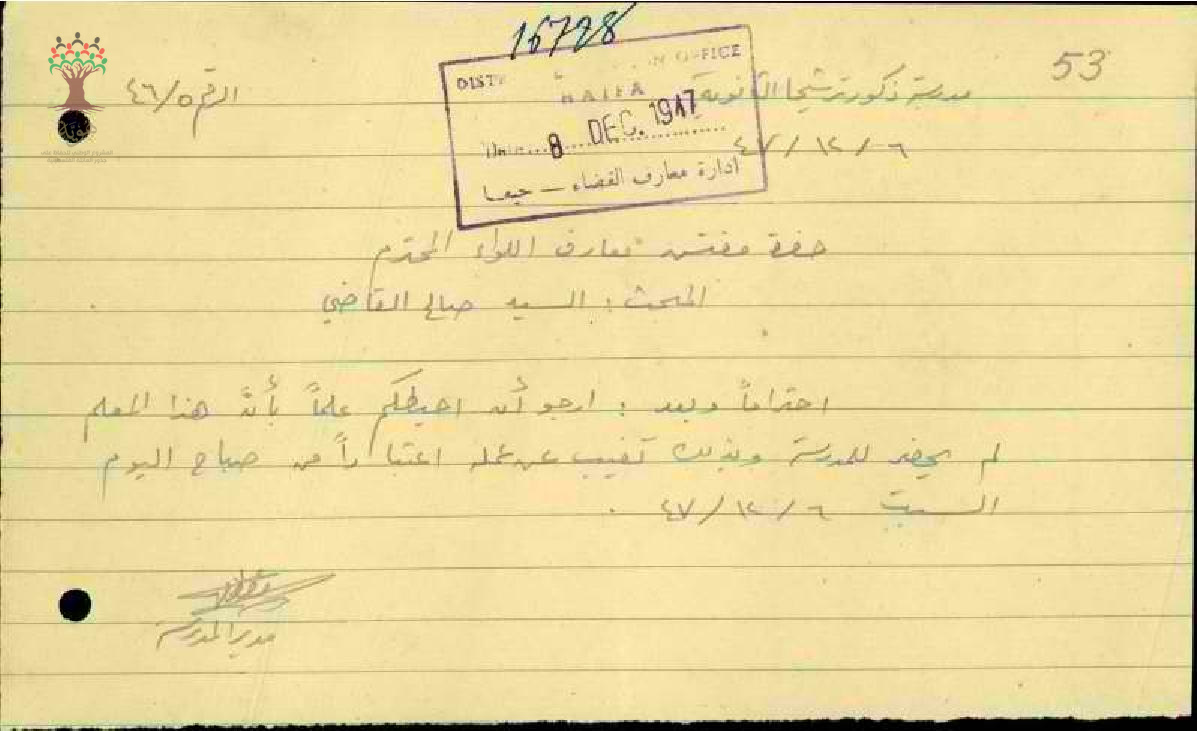 16728
53
مدرسة ذكور ترشيحا الثانوية
الرقم ٤٦/٥
٤٧/١٢/٦
DIST OFFICE
HAIFA
Date 8 DEC. 1947
ادارة معارف القضاء — حيفا
حضرة مفتش معارف اللواء المحترم
المبحث : السيد صالح القاضي
احتراماً وبعد : ارجو أن احيطكم علماً بأنَّ هذا المعلم
لم يحضر للمدرسة وبذلك تغيب عن عمله اعتباراً من صباح اليوم
السبت ٤٧/١٢/٦ .
مدير المدرسة
هوية